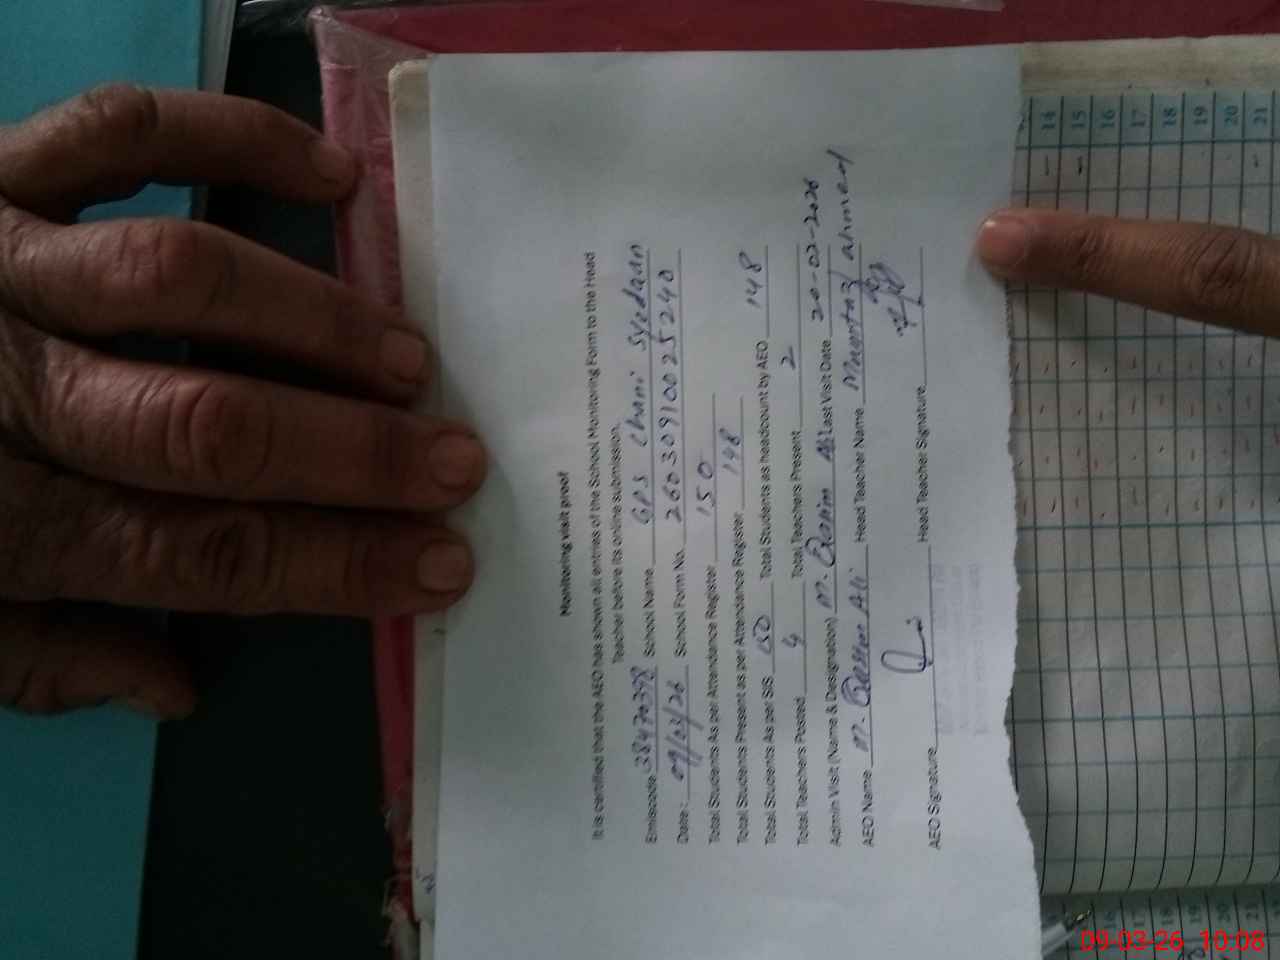 Monitoring visit proof
It is certified that the AEO has shown all entries of the School Monitoring Form to the Head
Teacher before its online submission.
Emiscode 38470398 School Name GPS Chani Syedaan
Date: 09/03/26 School Form No. 26030910025240
Total Students As per Attendance Register 150
Total Students Present as per Attendance Register 148
Total Students As per SIS 150 Total Students as headcount by AEO 148
Total Teachers Posted 4 Total Teachers Present 2
Admin Visit (Name & Designation) M. Last Visit Date 20-02-2026
AEO Name M. Ali Head Teacher Name Mumtaz ahmed
AEO Signature Head Teacher Signature
14
15
16
17
18
19
20
21
16
17
18
19
20
21
09-03-26 10:08